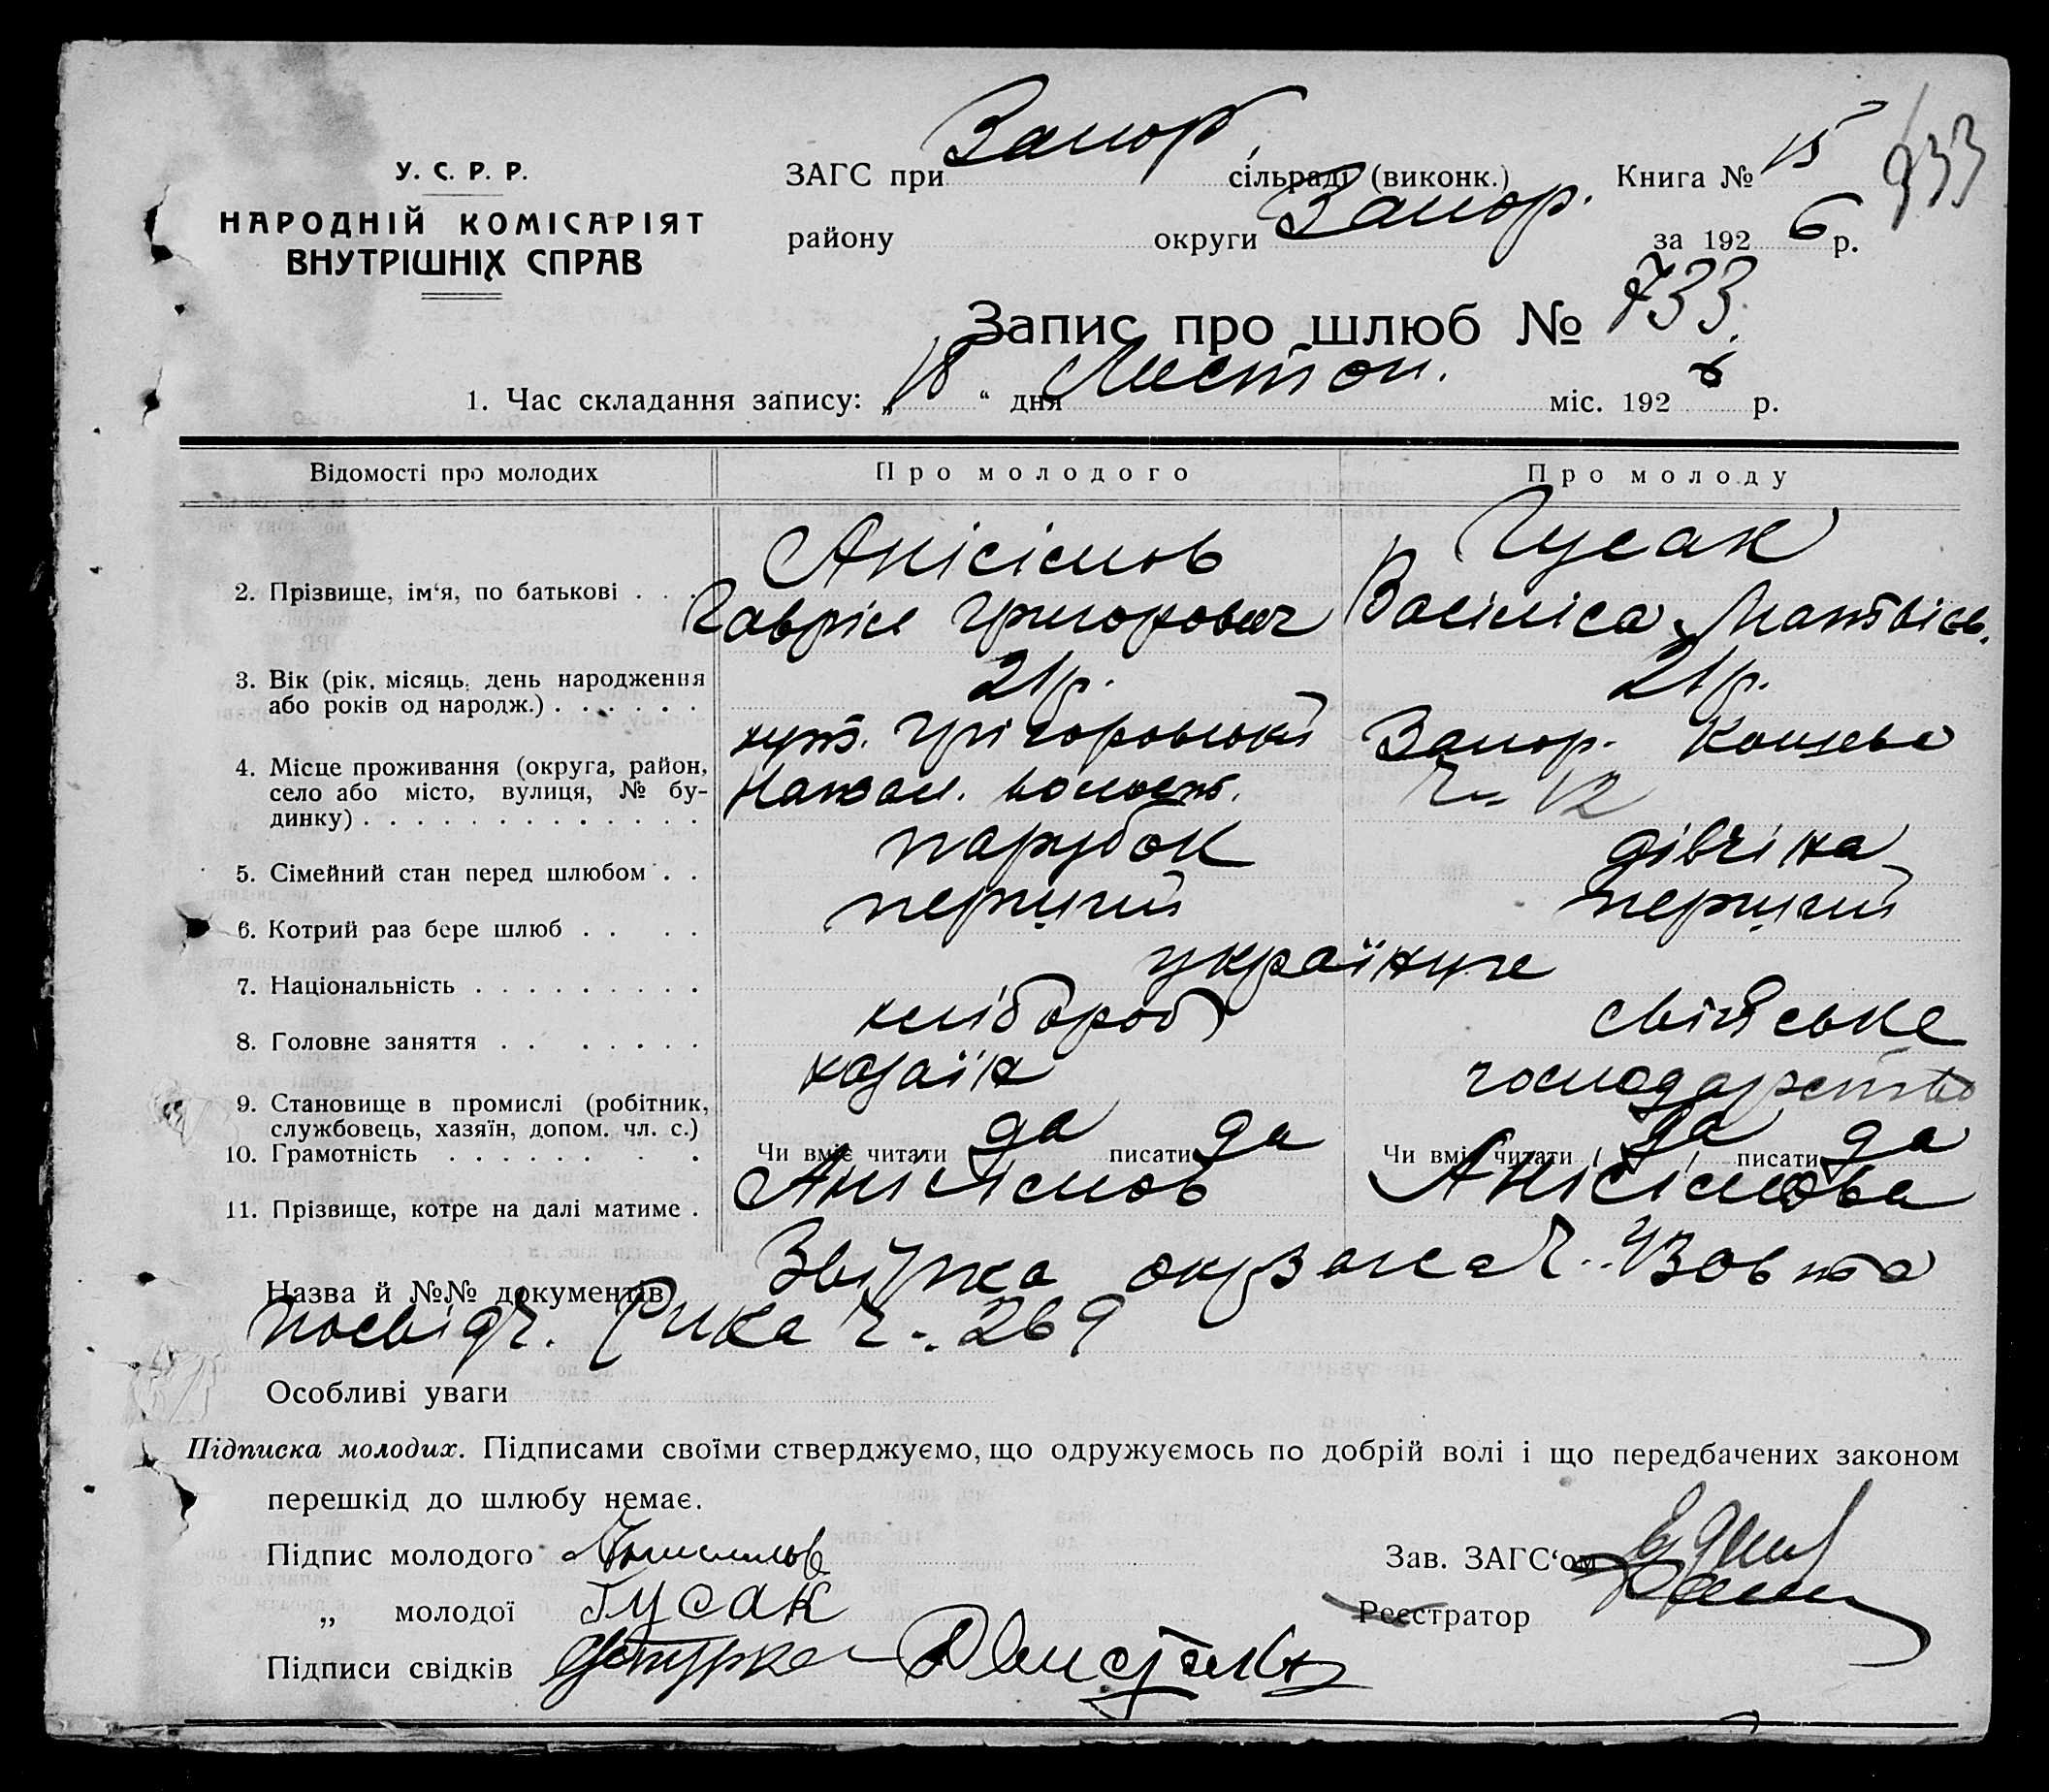 У. С. Р. Р.
НАРОДНІЙ КОМІСАРІЯТ
ВНУТРІШНІХ СПРАВ
ЗАГС при Запор. сільраді (виконк.) Книга № 15
району округи Запор. за 1926 р.
933
Запис про шлюб № 733.
1. Час складання запису: „18“ дня Листоп. міс. 1926 р.
Відомості про молодих Про молодого Про молоду
2. Прізвище, ім‘я, по батькові . . . Анісімов Гусак
Гавріїл Григорович Васіліса Матвієв.
3. Вік (рік, місяць, день народження
або років од народж.) . . . . . . 21 р. 21 р.
4. Місце проживання (округа, район,
село або місто, вулиця, № бу-
динку) . . . . . . . . . . . . .
хут. Григоровський Запор.
волост. 12
5. Сімейний стан перед шлюбом . . парубок дівчіна
6. Котрий раз бере шлюб . . . . перший перший
7. Національність . . . . . . . . . українці
8. Головне заняття . . . . . . . . хлібороб сільське
9. Становище в промислі (робітник,
службовець, хазяїн, допом. чл. с.)
хазаїн господарство
10. Грамотність . . . . . . . . Чи вміє читати да писати да Чи вміє читати да писати да
11. Прізвище, котре на далі матиме . Анісімов Анісімова
Назва й №№ документів
посвідч. Рика ч. 269
Особливі уваги
Підписка молодих. Підписами своїми стверджуємо, що одружуємось по добрій волі і що передбачених законом
перешкід до шлюбу немає.
Підпис молодого Анисимов Зав. ЗАГС‘ом
„ молодої Гусак Реєстратор
Підписи свідків